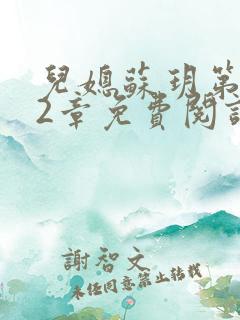 兒媳蘇玥第
2章免費閱讀
謝智文
未经同意禁止转载